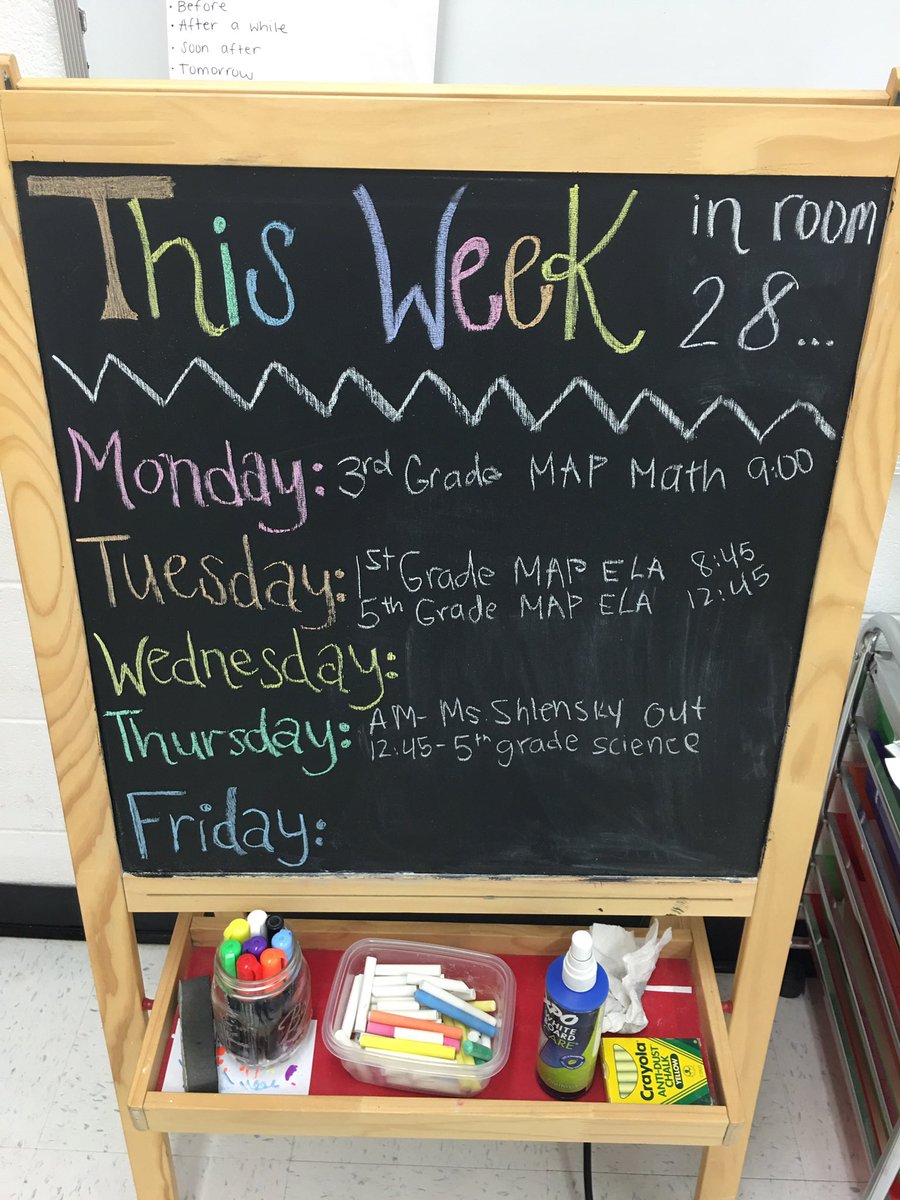 • Before
• After a while
• Soon after
• Tomorrow
This Week in room
28...
Monday: 3rd Grade MAP Math 9:00
Tuesday: 1st Grade MAP ELA 8:45
5th Grade MAP ELA 12:45
Wednesday:
Thursday: AM- Ms. Shlensky out
12:45-5th grade science
Friday:
EXPO
WHITE
BOARD
CARE
Crayola
ANTI-DUST
CHALK
YELLOW